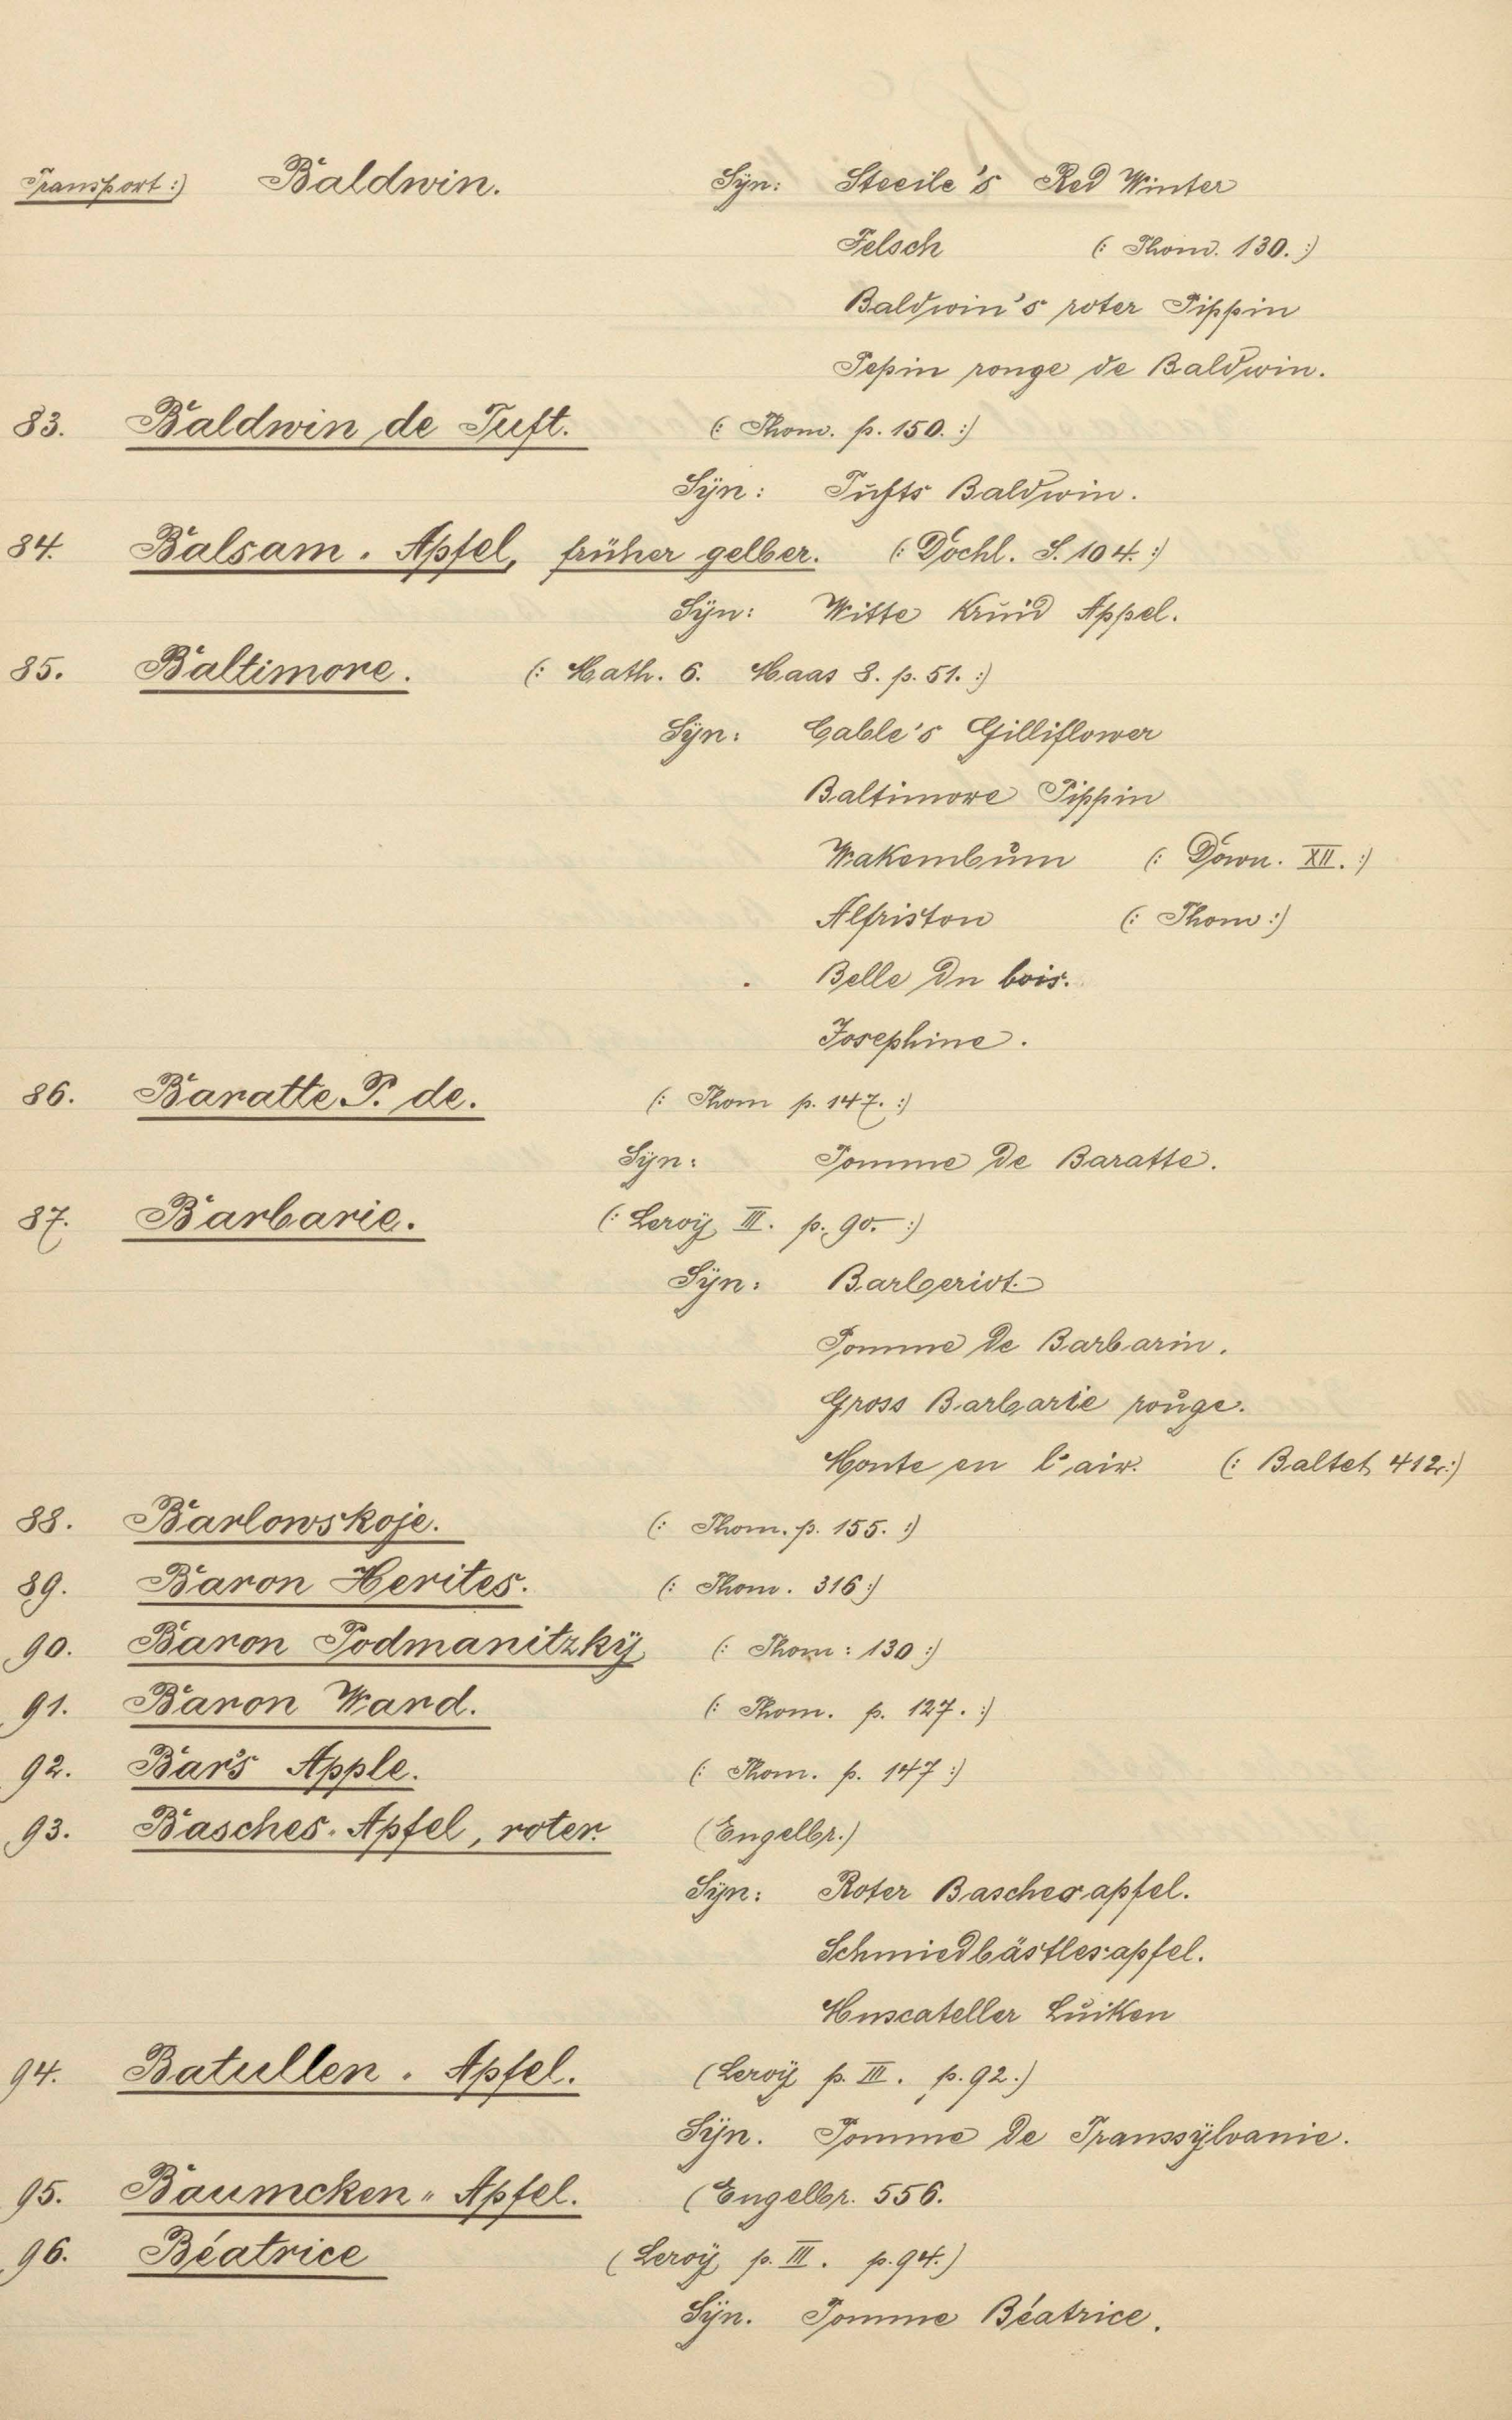 Transport:) Baldwin. Syn: Steeile's Red Winter
Felsch (: Thom. 130. :)
Baldwin's roter Pippin
Pepin rouge de Baldwin.
83. Baldwin de Tuft. (: Thom. p. 150. :)
Syn: Tufts Baldwin.
84. Balsam-Apfel, früher gelber. (: Dochl. S. 104. :)
Syn: Witte Kruid Appel.
85. Baltimore. (: Math. 6. Maas 8. p. 51. :)
Syn: Cable's Gilliflower
Baltimore Pippin
Wakembum (: Down. XII. :)
Alfriston (: Thom :)
Belle du bois.
Josephine.
86. Baratte P. de. (: Thom p. 147. :)
Syn: Pomme de Baratte.
87. Barbarie. (: Leroy III. p. 90. :)
Syn: Barberiot.
Pomme de Barbarin.
Gross Barbarie rouge.
Monte en l'air. (: Baltet 412. :)
88. Barlowskoje. (: Thom. p. 155. :)
89. Baron Herites. (: Thom. 316 :)
90. Baron Podmanitzky (: Thom: 130 :)
91. Baron Ward. (: Thom. p. 127. :)
92. Bar's Apple. (: Thom. p. 147 :)
93. Basches-Apfel, roter. (Engelbr.)
Syn: Roter Bascherapfel.
Schmiedbästlesapfel.
Muscateller Luiken
94. Batullen-Apfel. (Leroy p. III. p. 92.)
Syn. Pomme de Transsylvanie.
95. Baumcken-Apfel. (Engelbr. 556.
96. Béatrice (Leroy p. III. p. 94.)
Syn. Pomme Béatrice.